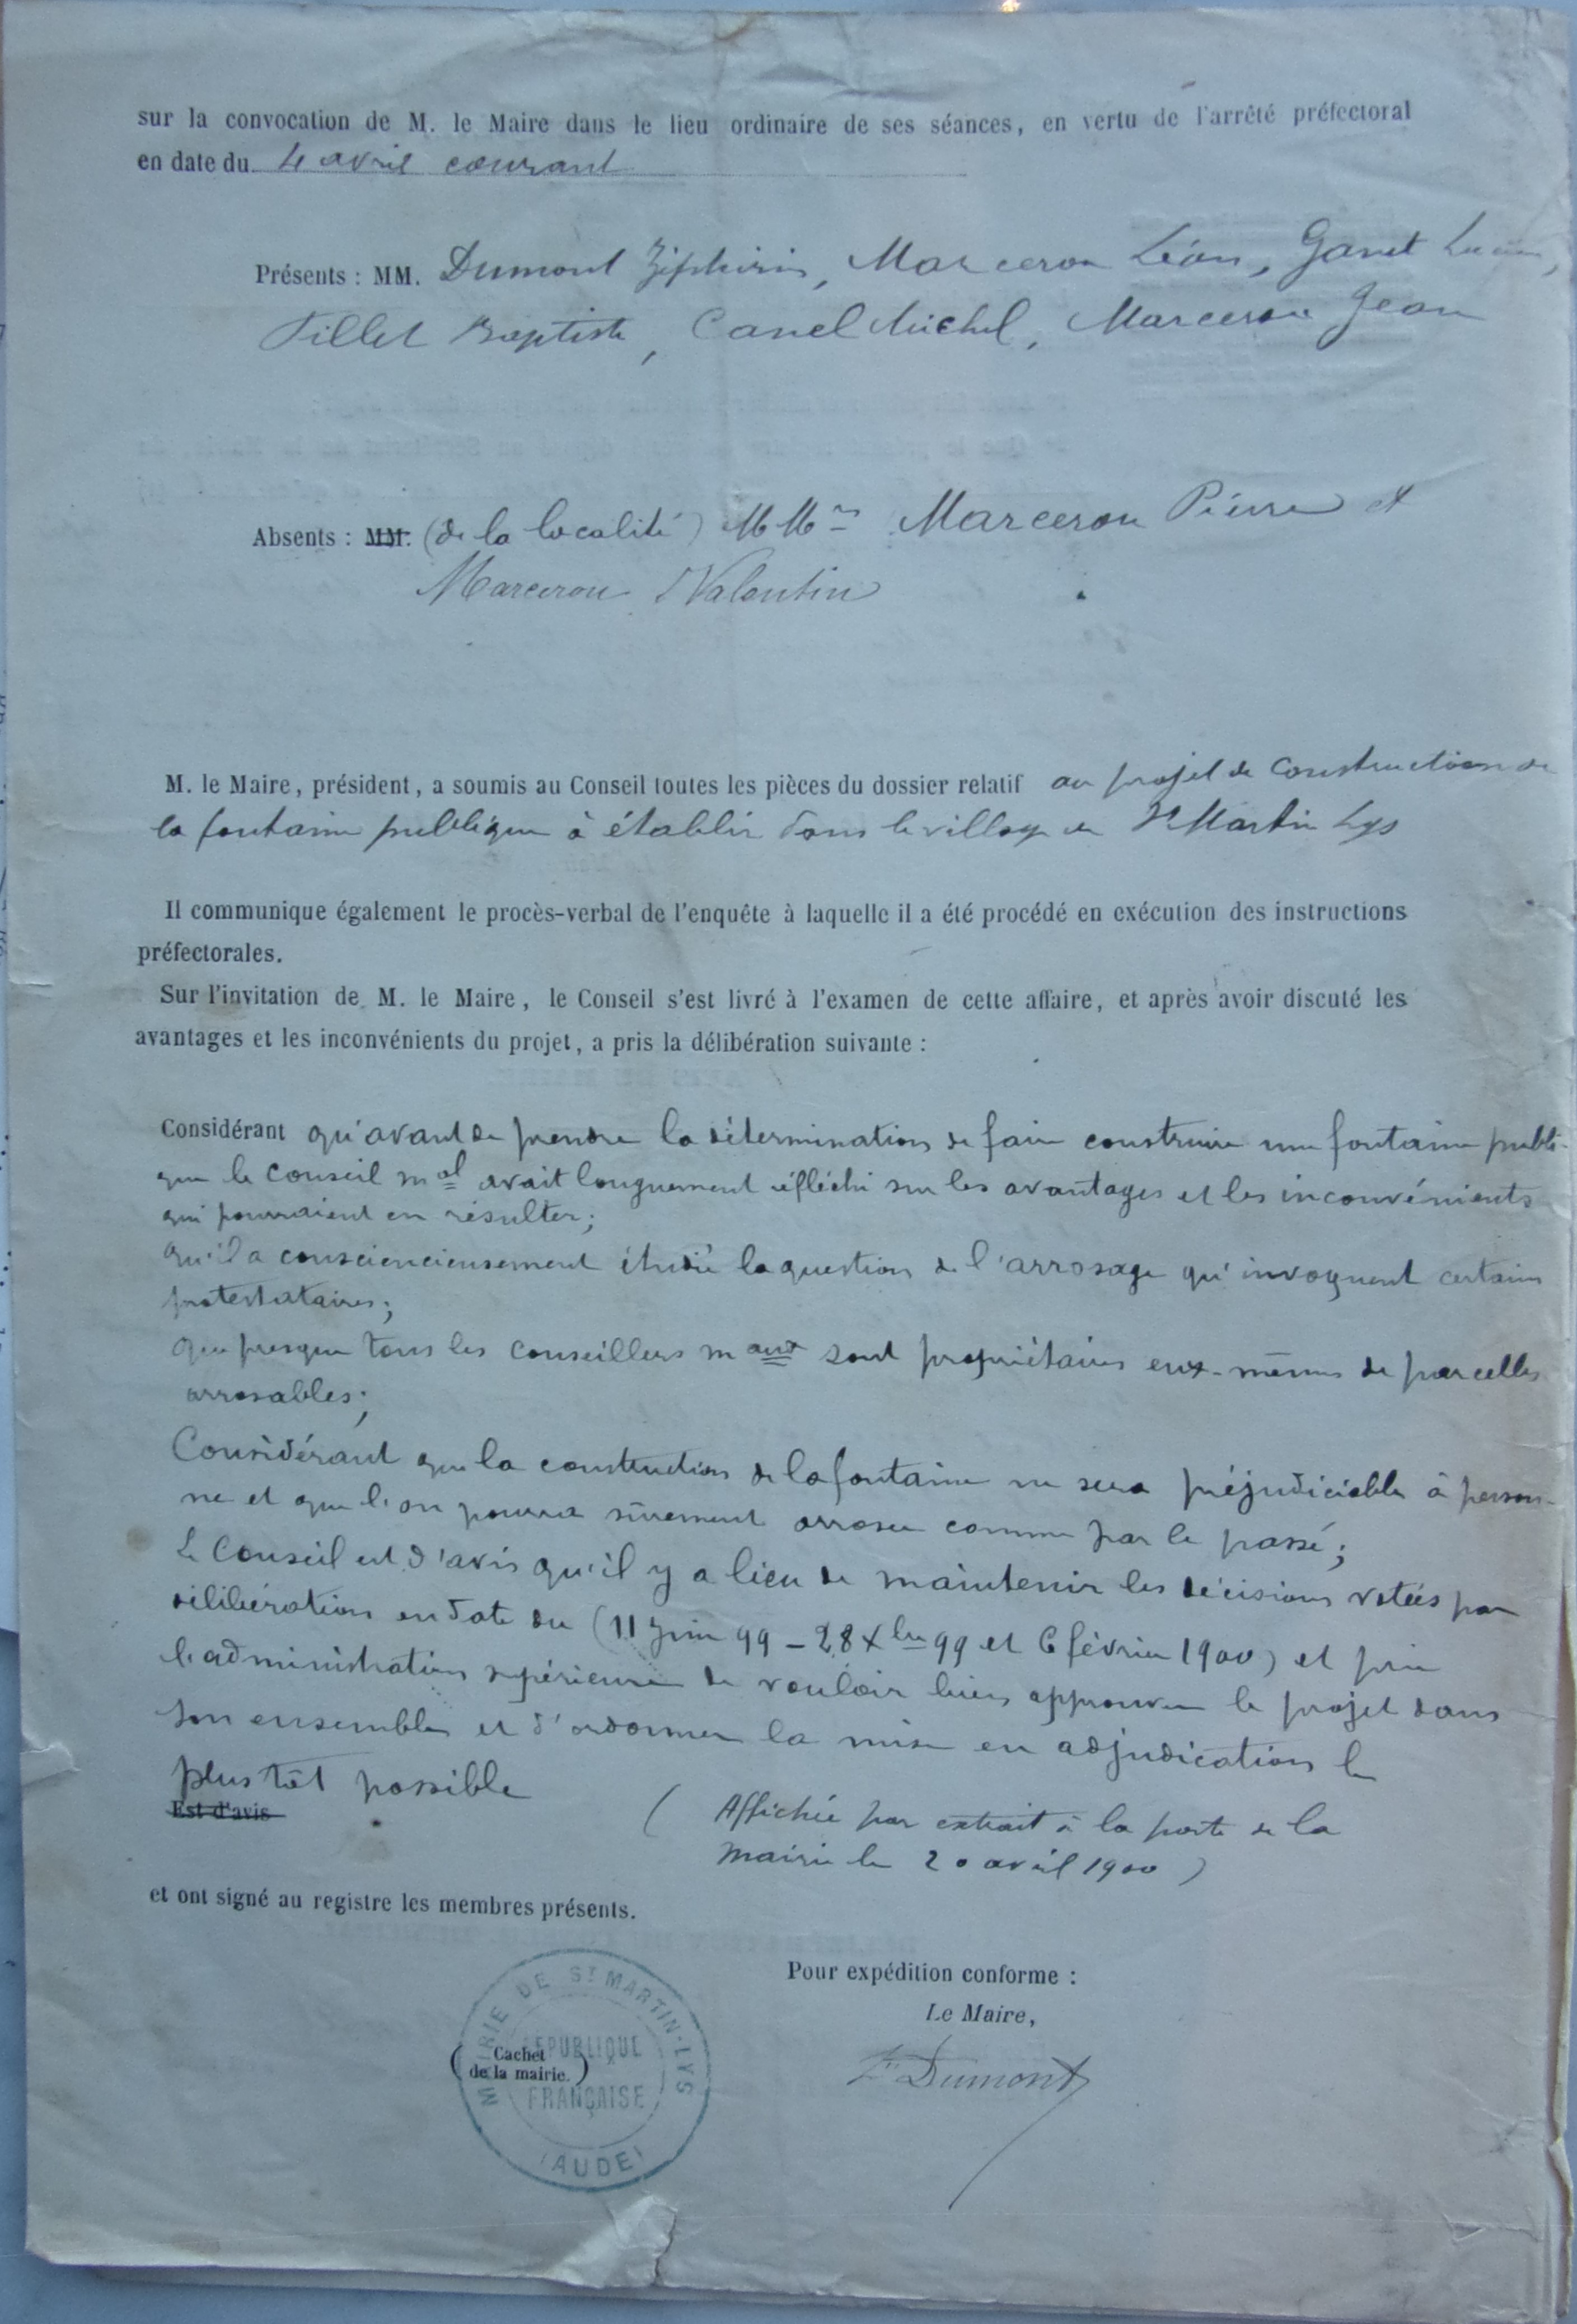 sur la convocation de M. le Maire dans le lieu ordinaire de ses séances, en vertu de l'arrêté préfectoral
en date du 4 avril courant
Présents : MM. Dumont Zéphirin, Marceron Léon, Ganet Lucien,
Fillet Baptiste, Canel Michel, Marceron Jean
Absents : MM. (de la localité) MMrs Marceron Pierre et
Marceron Valentin
M. le Maire, président, a soumis au Conseil toutes les pièces du dossier relatif au projet de construction de
la fontaine publique à établir dans le village de St Martin Lys
Il communique également le procès-verbal de l'enquête à laquelle il a été procédé en exécution des instructions
préfectorales.
Sur l'invitation de M. le Maire, le Conseil s'est livré à l'examen de cette affaire, et après avoir discuté les
avantages et les inconvénients du projet, a pris la délibération suivante :
Considérant qu'avant de prendre la détermination de faire construire une fontaine publi-
que le conseil mal avait longuement réfléchi sur les avantages et les inconvénients
qui pourraient en résulter;
qu'il a consciencieusement étudié la question de l'arrosage qu'invoquent certains
protestataires;
que presque tous les conseillers maux sont propriétaires eux-mêmes de parcelles
arrosables;
Considérant que la construction de la fontaine ne sera préjudiciable à person-
ne et que l'on pourra sûrement arroser comme par le passé;
Le Conseil est d'avis qu'il y a lieu de maintenir les décisions votées par
délibération en date du (11 juin 99 - 28 Xbre 99 et 6 février 1900) et prie
l'administration supérieure de vouloir bien approuver le projet dans
son ensemble et d'ordonner la mise en adjudication le
plus tôt possible
Est d'avis
( Affichée par extrait à la porte de la
mairie le 20 avril 1900 )
et ont signé au registre les membres présents.
Pour expédition conforme :
Le Maire,
Zn Dumont
(Cachet
de la mairie.)
MAIRIE DE ST MARTIN-LYS
RÉPUBLIQUE
FRANÇAISE
(AUDE)